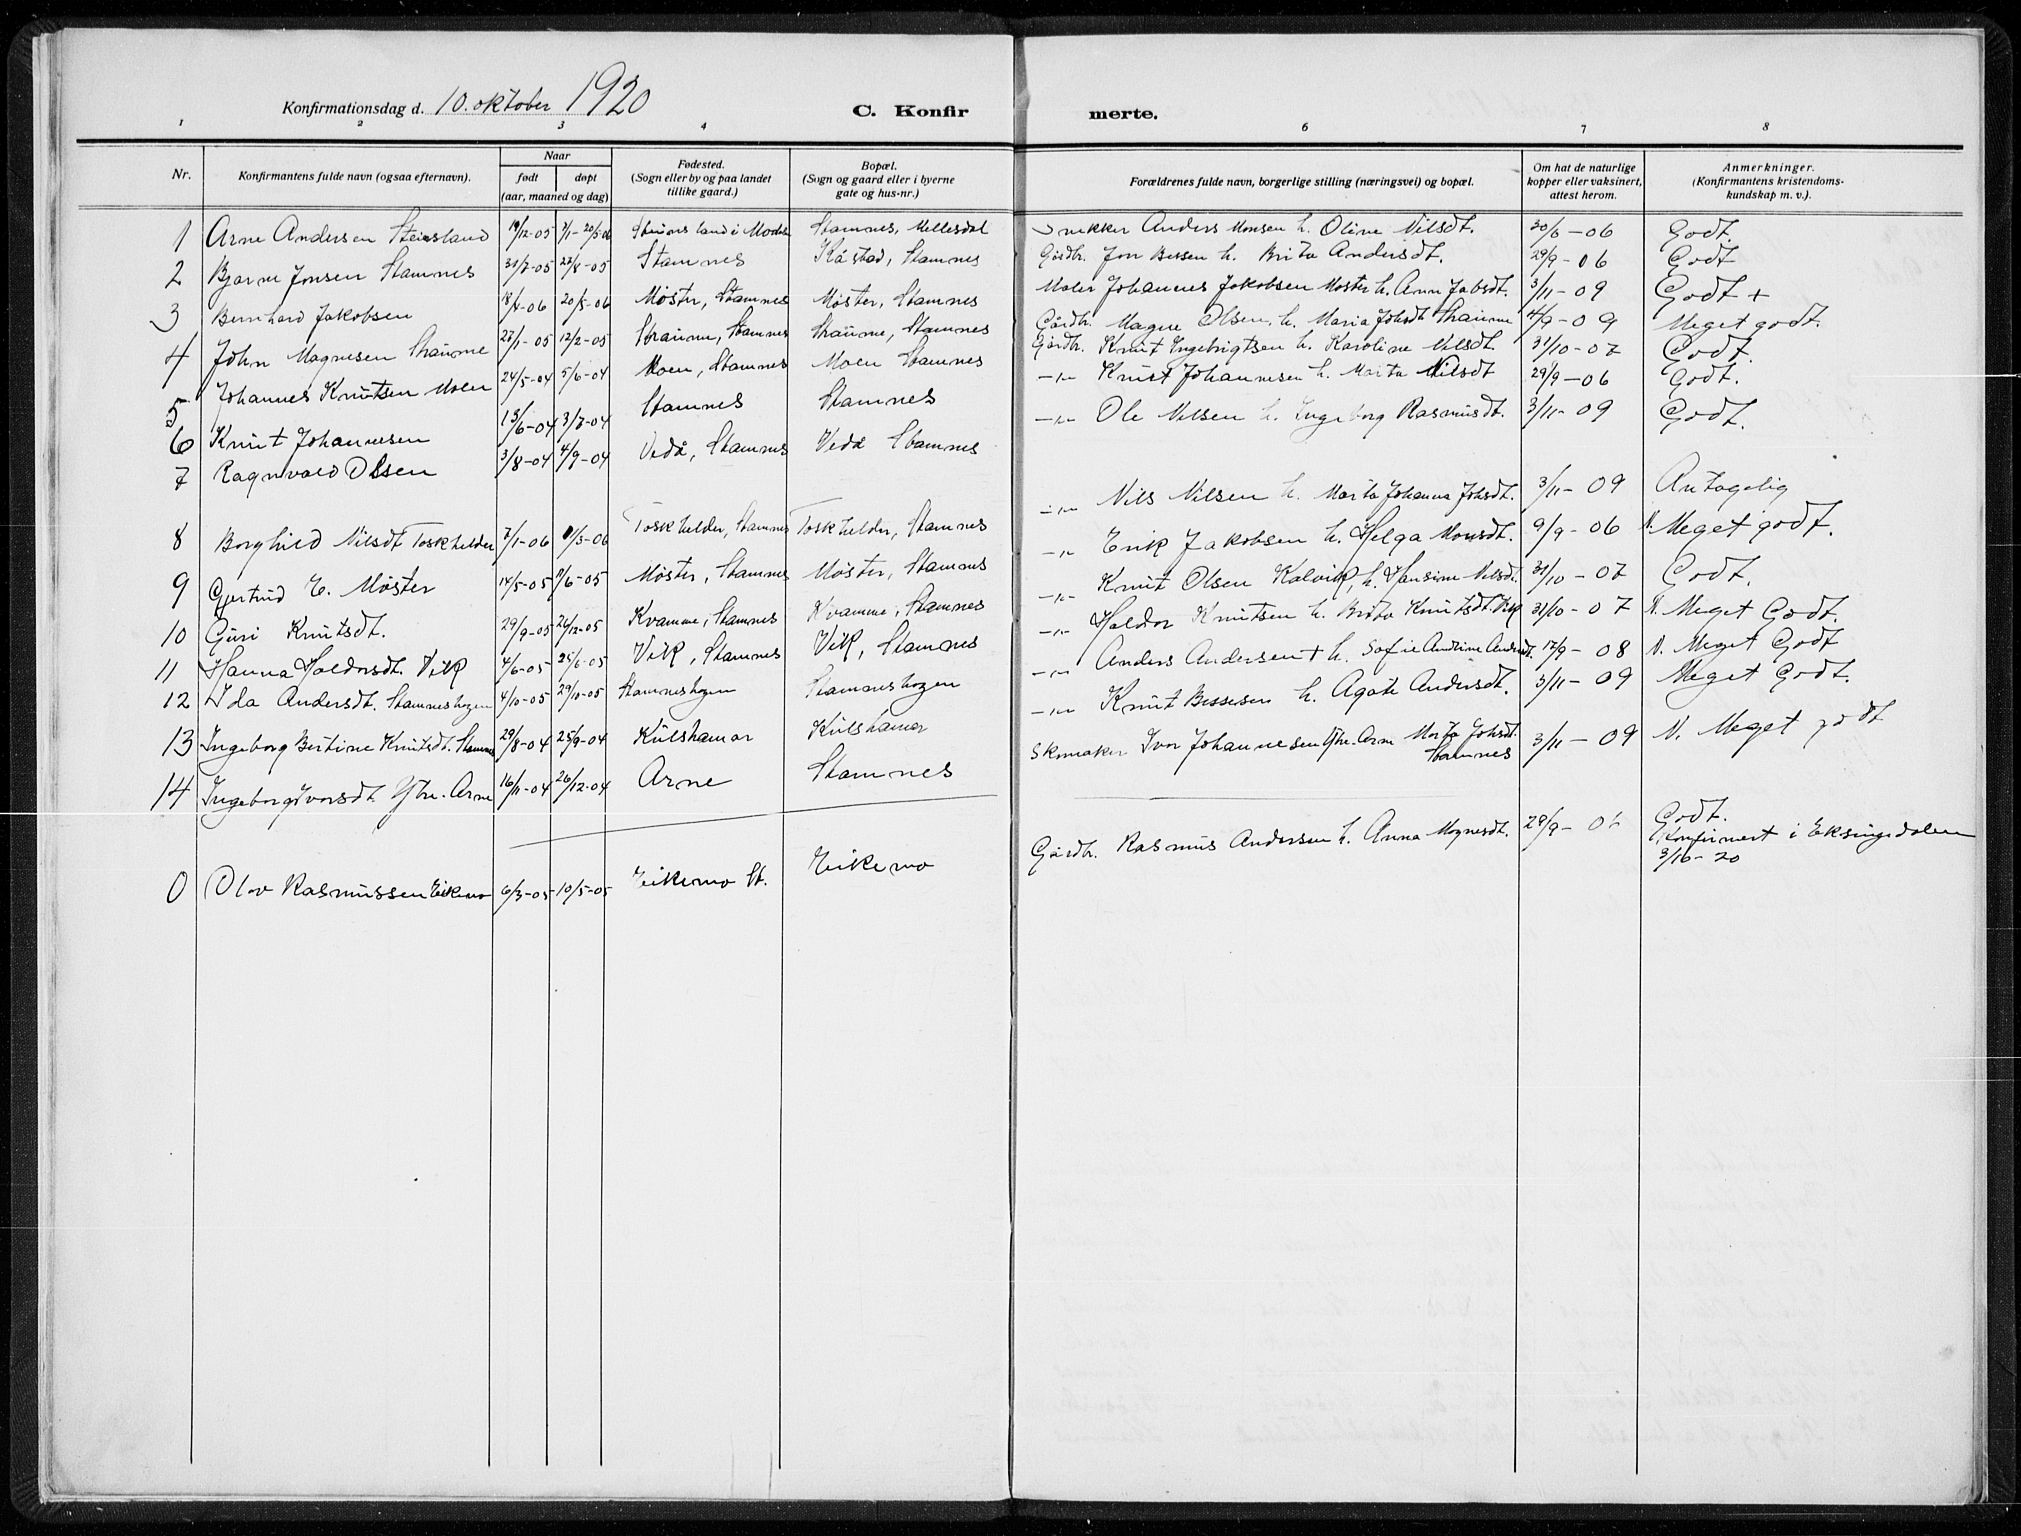 Konfirmationsdag d. 10. oktober 1920
C. Konfir merte.
1 2 3 4 6 7 8
Nr. Konfirmantens fulde navn (ogsaa efternavn). Naar født døpt (aar, maaned og dag) Fødested. (Sogn eller by og paa landet tillike gaard.) Bopæl. (Sogn og gaard eller i byerne gate og hus-nr.) Forældrenes fulde navn, borgerlige stilling (næringsvei) og bopæl. Om hat de naturlige kopper eller vaksinert, attest herom. Anmerkninger. (Konfirmantens kristendoms-kundskap m. v.).
1 Arne Andersen Steinsland 19/12-05 Stamnes, Mellesdal Snekker Anders Monsen h. Oline Nilsdt. 30/6-06 Godt.
2 Bjarne Jonsen Stamnes 31/7-05 27/8-05 Stamnes Kåstad, Stamnes Gårdbr. Jon Bessen h. Brita Andersdt. 29/9-06 Godt
3 Bernhard Jakobsen 18/4-06 20/5-06 Møster, Stamnes Møster, Stamnes Maler Johannes Jakobsen Møster h. Anna Jabsdt. 3/11-09 Godt +
4 John Magnesen Straume 27/1-05 12/2-05 Straume, Stamnes Straume, Stamnes Gårdbr. Magne Olsen h. Maria Johsdt Straume 4/9-09 Meget godt.
5 Johannes Knutsen Moen 24/5-04 5/6-04 Moen, Stamnes Moen Stamnes Gårdbr. Knut Ingebrigtsen h. Karoline Nilsdt. 31/10-07 Godt.
6 Knut Johannesen 15/6-04 3/7-04 Stamnes Stamnes -"- Knut Johannesen h. Marta Nilsdt 29/9-06 Godt.
7 Ragnvald Olsen 3/8-04 4/9-04 Vedå, Stamnes Vedå Stamnes -"- Ole Nilsen h. Ingeborg Rasmusdt. 3/11-09 Godt.
8 Borghild Nilsdt Toskhelder 7/1-06 11/3-06 Toskhelder, Stamnes Toskhelder, Stamnes -"- Nils Nilsen h. Marta Johanna Johsdt. 3/11-09 Antagelig
9 Gjertrud E. Møster 14/5-05 /6-05 Møster, Stamnes Møster, Stamnes -"- Erik Jakobsen h. Helga Monsdt. 9/9-06 N. Meget godt.
10 Guri Knutsdt. 29/9-05 26/12-05 Kvamme, Stamnes Kvamme, Stamnes -"- Knut Olsen Kalvik, h. Hansine Nilsdt. 31/10-07 Godt.
11 Hanna Haldorsdt. Vik 4/6-05 25/6-05 Vik, Stamnes Vik, Stamnes -"- Haldor Knutsen h. Brita Knutsdt. Vik 31/10-07 N. Meget Godt.
12 Ida Andersdt. Stamneshagen 4/10-05 29/10-05 Stamneshagen Stamneshagen -"- Anders Andersen + h. Sofie Andrine Andersdt. 17/9-08 N. Meget Godt
13 Ingeborg Bertine Knutsdt. Stamnes 29/8-04 25/9-04 Kulshamar Kulshamar -"- Knut Bessesen h. Agate Andersdt. 3/11-09 Meget Godt.
14 Ingeborg Ivarsdt. Ytre-Arne 16/11-04 26/12-04 Arne Stamnes Skomaker Ivar Johannesen Ytre-Arne Marta Johsdt. Stamnes 3/11-09 N. Meget godt
0 Olav Rasmussen Eikemo 6/3-05 10/5-05 Eikemo St. Eikemo Gårdbr. Rasmus Anderssen h. Anna Magnesdt. 29/9-06 Godt.
Konfirmert i Eksingedalen
3/10-20